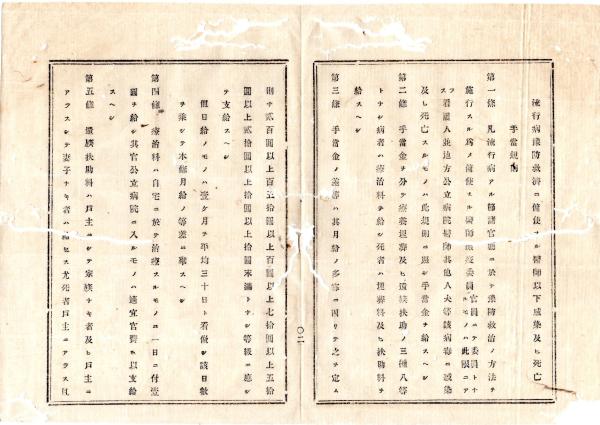 流行病豫防救濟ニ傭使スル醫師以下感染及ヒ死亡
手當規則
第一條 凡流行病アル節諸官廳ニ於テ豫防救治ノ方法ヲ
施行スル爲メ傭使スル醫師檢疫委員官員ニテ委員トナルモノハ此限ニアラス
看護人並地方公立病院醫師其他人夫等該病毒ニ感染
及ヒ死亡スルモノハ此規則ニ照シ手當金ヲ給スヘシ
第二條 手當金ヲ分テ療養埋葬及ヒ遺族扶助ノ三種八等
トナシ病者ハ療治料ヲ給シ死者ハ埋葬料及ヒ扶助料ヲ
給スヘシ
第三條 手當金ノ差等ハ其月給ノ多寡ニ因リテ之ヲ定ム
〇二
則チ貳百圓以上百五拾圓以上百圓以上七拾圓以上五拾
圓以上貳拾圓以上拾圓以上拾圓未滿トナシ等級ニ應シ
テ支給スヘシ
但日給ノモノハ壹ケ月ヲ平均三十日ト看做シ該日數
ヲ乘シテ本條月給ノ等差ニ準スヘシ
第四條 療治料ハ自宅ニ於テ治療スルモノニ一日ニ付壹
圓ヲ給シ其官公立病院ニ入ルモノハ適宜官費ヲ以支給
スヘシ
第五條 遺族扶助料ハ戸主ニシテ家族ナキ者及ヒ戸主ニ
アラスシテ妻子ナキ者ハ給セス尤死者戸主ニアラス且